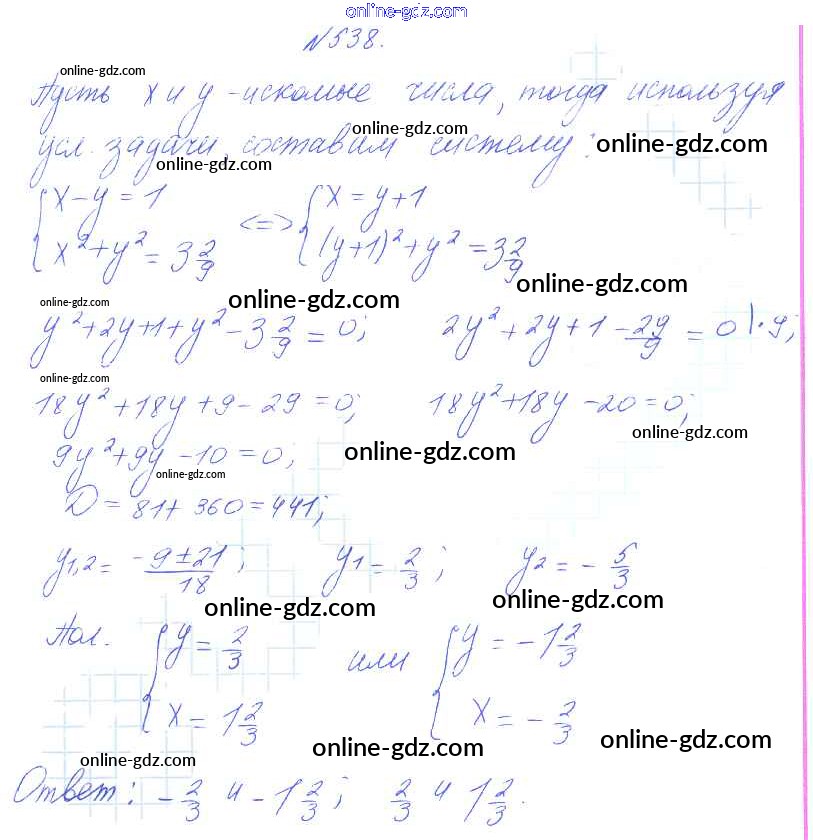 online-gdz.com
№538.
online-gdz.com
Пусть x и y - искомые числа, тогда используя
online-gdz.com
усл. задачи, составим систему:
online-gdz.com
online-gdz.com
{ x - y = 1 <=> { x = y + 1
{ x² + y² = 3 2/9 { (y+1)² + y² = 3 2/9
online-gdz.com
online-gdz.com
online-gdz.com
y² + 2y + 1 + y² - 3 2/9 = 0; 2y² + 2y + 1 - 29/9 = 0 |·9;
online-gdz.com
18y² + 18y + 9 - 29 = 0; 18y² + 18y - 20 = 0;
online-gdz.com
9y² + 9y - 10 = 0;
online-gdz.com
online-gdz.com
D = 81 + 360 = 441;
y1,2 = (-9 ± 21)/18; y1 = 2/3; y2 = - 5/3
online-gdz.com
online-gdz.com
Пол. { y = 2/3 или { y = -1 2/3
{ x = 1 2/3 { x = - 2/3
online-gdz.com
online-gdz.com
online-gdz.com
Ответ: - 2/3 и -1 2/3; 2/3 и 1 2/3.